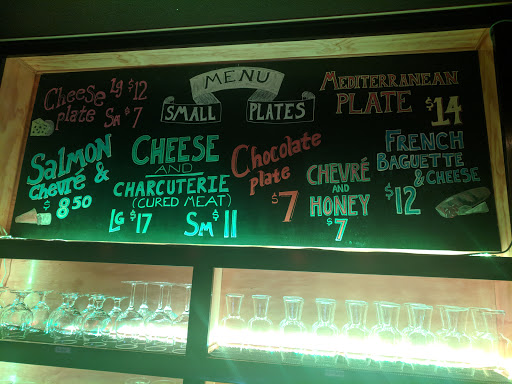 MENU
SMALL PLATES
Cheese Lg $12
plate Sm $7
MEDITERRANEAN
PLATE $14
SALMON
Chevré &
$8.50
CHEESE
AND
CHARCUTERIE
(CURED MEAT)
LG $17 SM $11
Chocolate
plate
$7
CHEVRÉ
AND
HONEY
$7
FRENCH
BAGUETTE
& CHEESE
$12